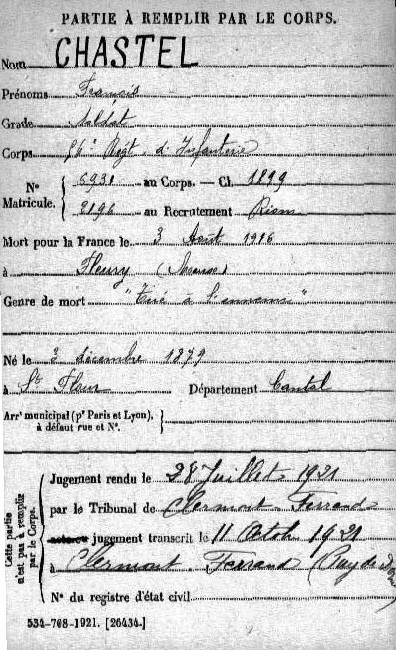 PARTIE À REMPLIR PAR LE CORPS.
Nom CHASTEL
Prénoms Francis
Grade Soldat
Corps Régt d'Infanterie
N° Matricule. 5931 au Corps. — Cl. 1899
2196 au Recrutement Riom
Mort pour la France le 3 Août 1916
à Fleury (Meuse)
Genre de mort "Tué à l'ennemi"
Né le 3 décembre 1879
à St Flour Département Cantal
Arrt municipal (pr Paris et Lyon), à défaut rue et N°.
Cette partie n'est pas à remplir par le Corps.
Jugement rendu le 28 Juillet 1921
par le Tribunal de Clermont-Ferrand
jugement transcrit le 11 Octob 1921
à Clermont-Ferrand (Puy de Dôme)
N° du registre d'état civil
534-708-1921. [26434.]